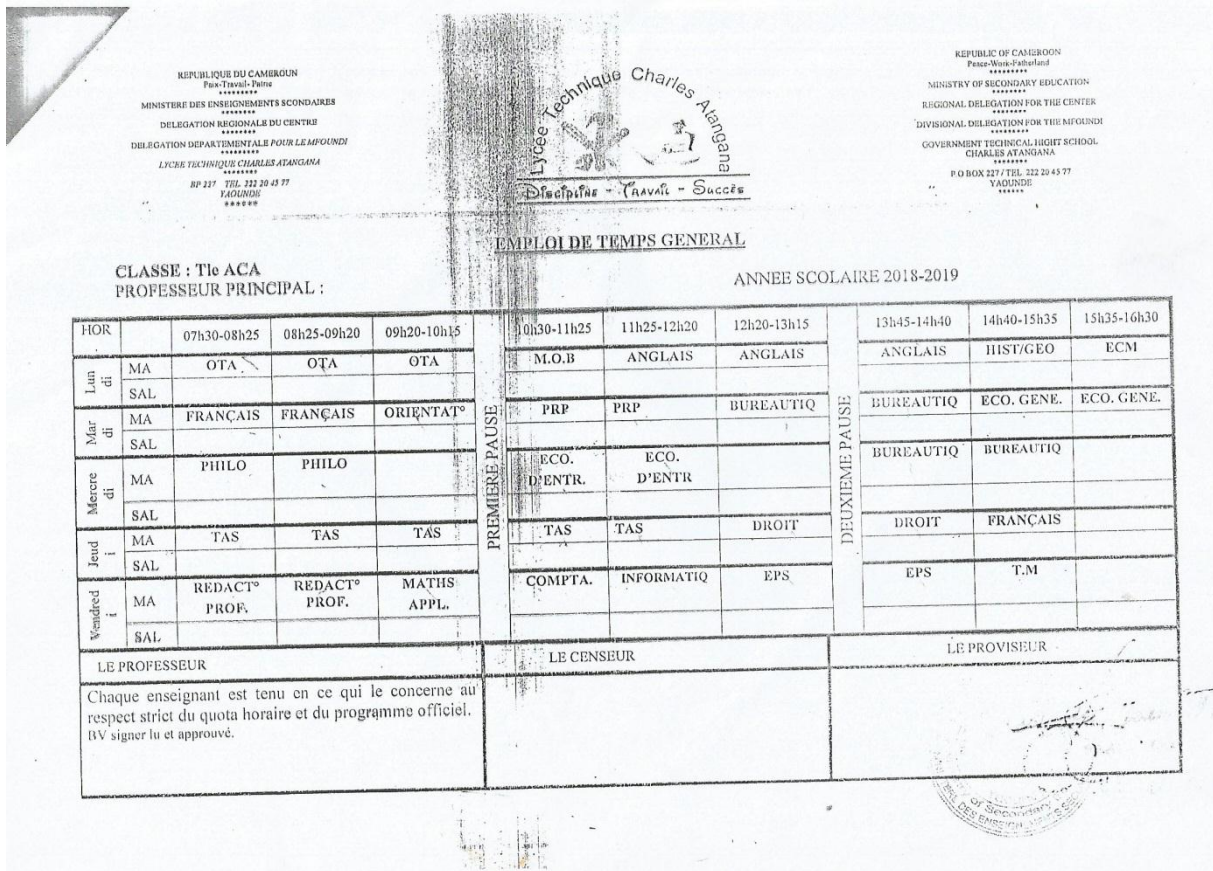 REPUBLIQUE DU CAMEROUN
Paix-Travail- Patrie
*********
MINISTERE DES ENSEIGNEMENTS SCONDAIRES
********
DELEGATION REGIONALE DU CENTRE
********
DELEGATION DEPARTEMENTALE POUR LE MFOUNDI
********
LYCEE TECHNIQUE CHARLES ATANGANA
********
BP 227 TEL. 222 20 45 77
YAOUNDE
******
Lycée Technique Charles Atangana
Discipline - Travail - Succès
REPUBLIC OF CAMEROON
Peace-Work-Fatherland
*********
MINISTRY OF SECONDARY EDUCATION
********
REGIONAL DELEGATION FOR THE CENTER
********
DIVISIONAL DELEGATION FOR THE MFOUNDI
********
GOVERNMENT TECHNICAL HIGHT SCHOOL
CHARLES ATANGANA
********
P.O BOX 227 / TEL. 222 20 45 77
YAOUNDE
******
EMPLOI DE TEMPS GENERAL
CLASSE : Tle ACA
PROFESSEUR PRINCIPAL :
ANNEE SCOLAIRE 2018-2019
HOR 07h30-08h25 08h25-09h20 09h20-10h15 10h30-11h25 11h25-12h20 12h20-13h15 13h45-14h40 14h40-15h35 15h35-16h30
PREMIERE PAUSE
DEUXIEME PAUSE
Lundi MA OTA OTA OTA M.O.B ANGLAIS ANGLAIS ANGLAIS HIST/GEO ECM
SAL
Mardi MA FRANÇAIS FRANÇAIS ORIENTAT° PRP PRP BUREAUTIQ BUREAUTIQ ECO. GENE. ECO. GENE.
SAL
Mercredi MA PHILO PHILO ECO. D'ENTR. ECO. D'ENTR BUREAUTIQ BUREAUTIQ
SAL
Jeudi MA TAS TAS TAS TAS TAS DROIT DROIT FRANÇAIS
SAL
Vendredi MA REDACT° PROF. REDACT° PROF. MATHS APPL. COMPTA. INFORMATIQ EPS EPS T.M
SAL
LE PROFESSEUR LE CENSEUR LE PROVISEUR
Chaque enseignant est tenu en ce qui le concerne au
respect strict du quota horaire et du programme officiel.
BV signer lu et approuvé.
of Secondary